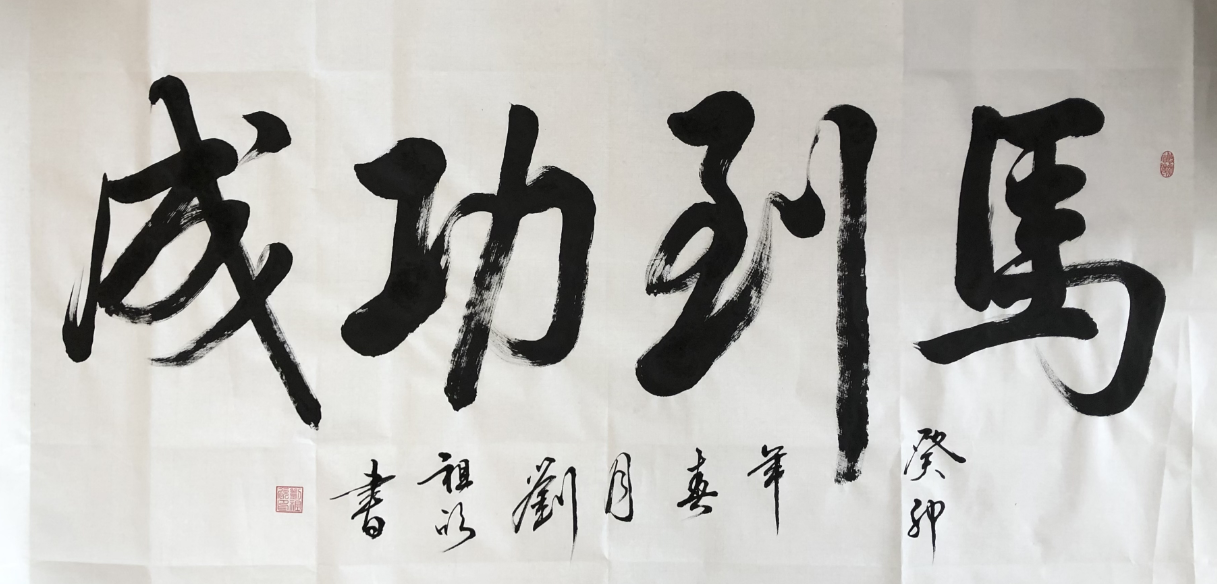 馬到功成
癸卯年春月劉祖明書